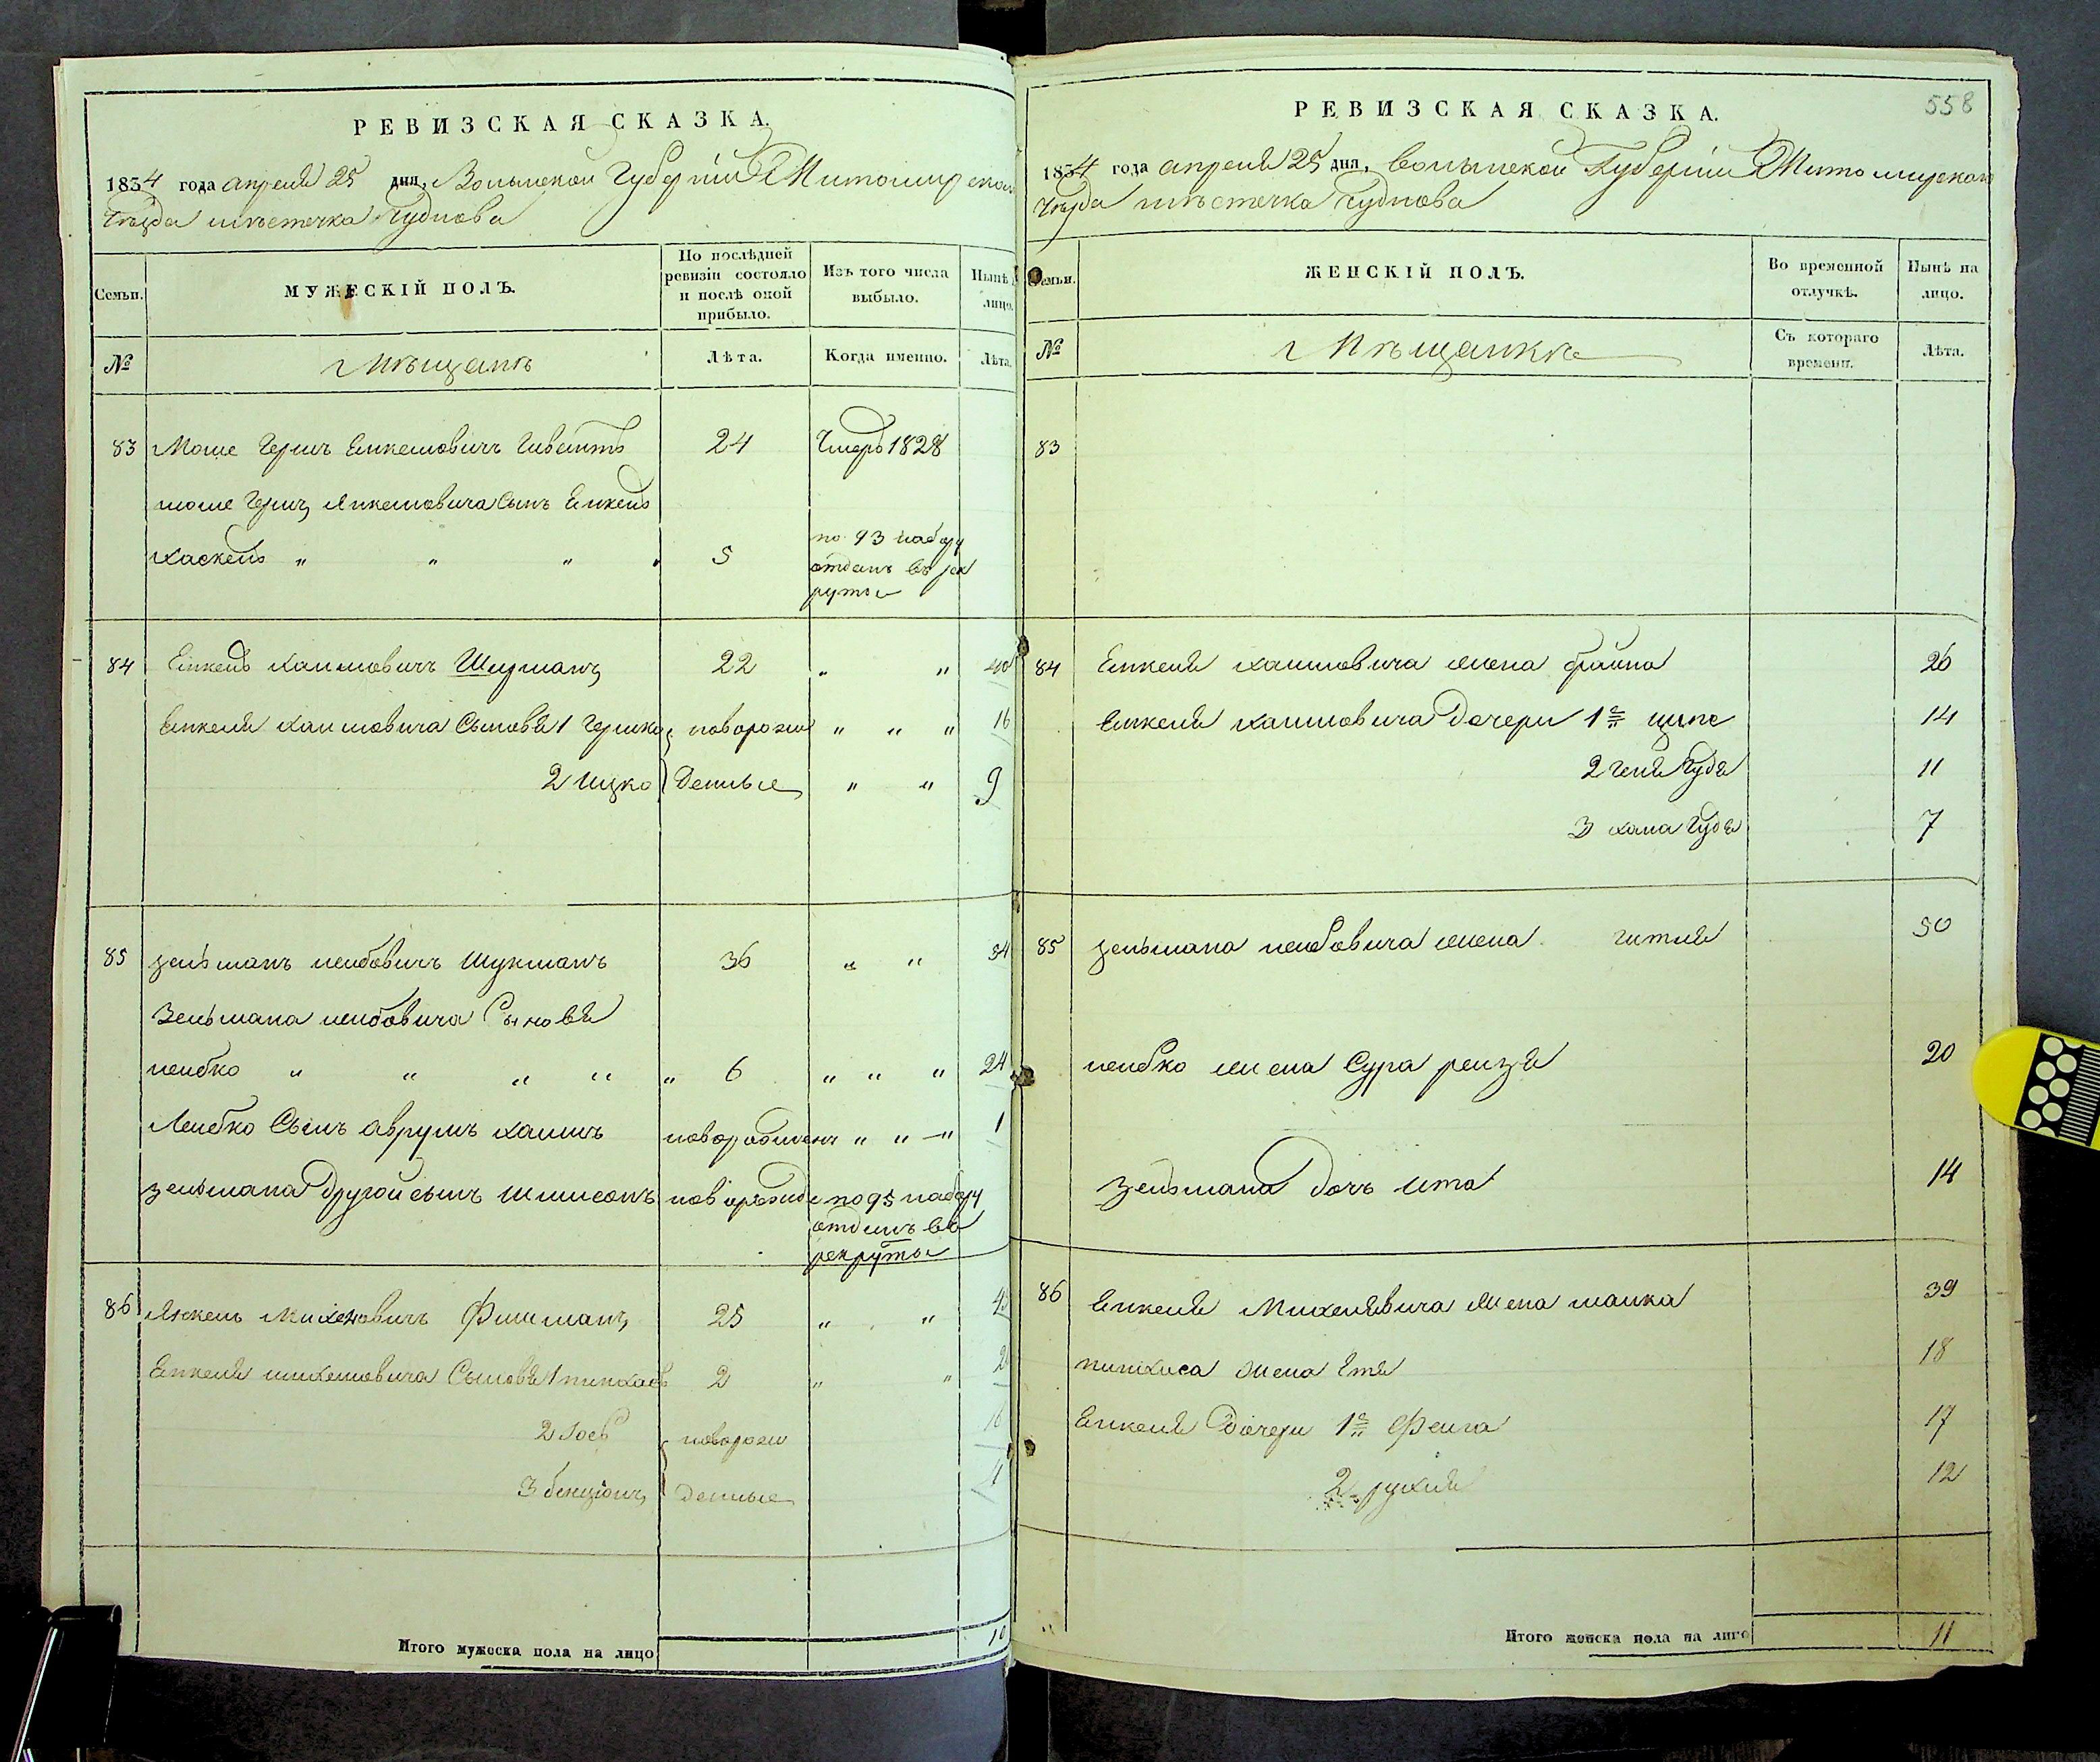 РЕВИЗСКАЯ СКАЗКА.
1834 года апреля 25 дня, Волынской Губерніи Житомирской
Уѣзда мѣстечка Чуднова
Семьи. МУЖЕСКІЙ ПОЛЪ. По послѣдней ревизіи состояло и послѣ оной прибыло. Изъ того числа выбыло. Нынѣ лицо.
№ Мѣщанъ Лѣта. Когда именно. Лѣта.
83 Моше Гершъ Янкелевичъ 24 Умеръ 1828
моше Герш Янкелевича Сынъ Янкель
Хаскель " " " " 5 по 93 набору
отданъ въ рек
руты
84 Янкель Хаимовичъ 22 " " 40
Янкеля Хаимовича Сыновья 1 Гершко новорож " " " 16
2 Ицко денные " " 9
85 зельманъ лейбовичъ Шукманъ 36 " " 54
Зельмана лейбовича Сыновья
лейбко " " " " " 6 " " " 24
Лейбко Сынъ аврумъ хаимъ новорожденъ " " " 1
зельмана Другой сынъ Шимсонъ новорожде по 95 набору
отданъ въ
рекруты
86 Янкель Михелевичъ Фишманъ 25 " " 43
Янкеля михелевича Сыновья 1 пинхасъ 2 " " 20
2 Іосъ новорож 16
3 бенціонъ денные 4
Итого мужеска пола на лицо 10
РЕВИЗСКАЯ СКАЗКА.
558
1834 года апреля 25 дня, волынской Губерніи Житомирской
Уѣзда мѣстечка Чуднова
Семьи. ЖЕНСКІЙ ПОЛЪ. Во временной отлучкѣ. Нынѣ на лицо.
№ Мѣщанке Съ котораго времени. Лѣта.
83
84 Янкеля хаимовича жена файна 26
Янкеля хаимовича Дочери 1я ципе 14
2 Геня Гудя 11
3 хана Гудя 7
85 зельмана лейбовича жена гитля 50
лейбко жена Сура рейзя 20
Зельмана дочь ита 14
86 Янкеля Михелявича жена малка 39
пинхиса жена Етя 18
Янкеля Дочери 1я Фейга 17
2 рухля 12
Итого женска пола на лицо 11